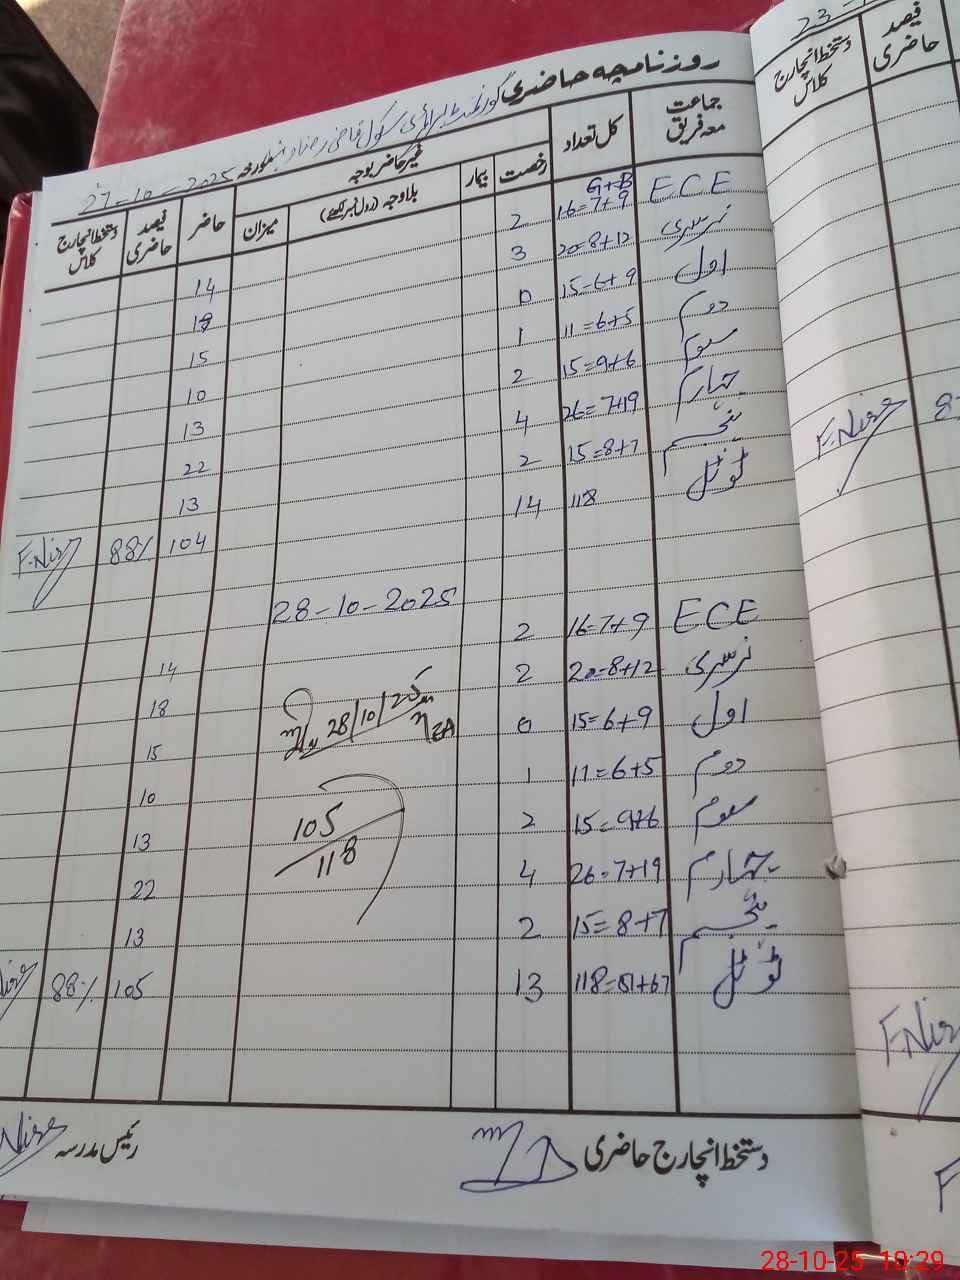 روزنامچہ حاضری
گورنمنٹ پرائمری سکول قاضی رضا
مورخہ 27-10-2025
جماعت معہ فریق کل تعداد رخصت بیمار غیر حاضر بوجہ بلاوجہ (رول نمبر لکھیے) میزان حاضر فیصد حاضری دستخط انچارج کلاس
G+B
ECE 16=7+9 2 14
نرسری 20=8+12 3 18
اول 15=6+9 0 15
دوم 11=6+5 1 10
سوم 15=9+6 2 13
چہارم 26=7+19 4 22
پنجم 15=8+7 2 13
ٹوٹل 118 14 104 88% F.Nisa
28-10-2025
ECE 16=7+9 2 14
نرسری 20=8+12 2 18
اول 15=6+9 0 15
دوم 11=6+5 1 10
سوم 15=9+6 2 13
چہارم 26=7+19 4 22
پنجم 15=8+7 2 13
ٹوٹل 118=51+67 13 105 88%
28/10/25
105
118
دستخط انچارج حاضری
رئیس مدرسہ
23-
فیصد حاضری
دستخط انچارج کلاس
F.Nisa
F.Nisa
28-10-25 10:29